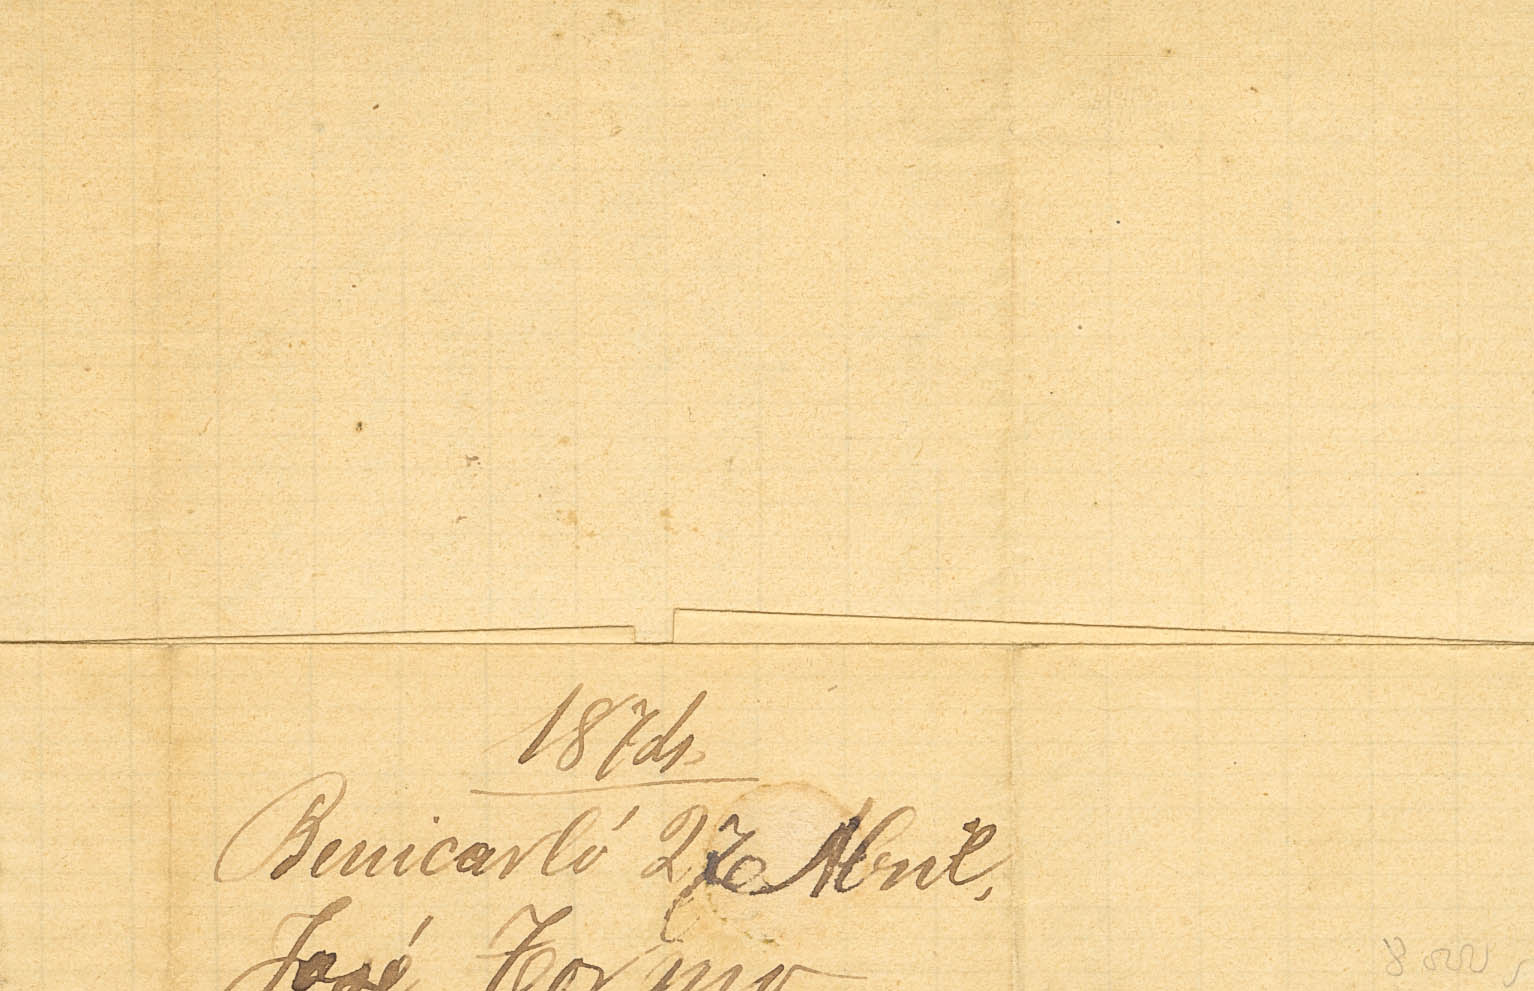 1874
Benicarló 27 Abril,
José Tormo